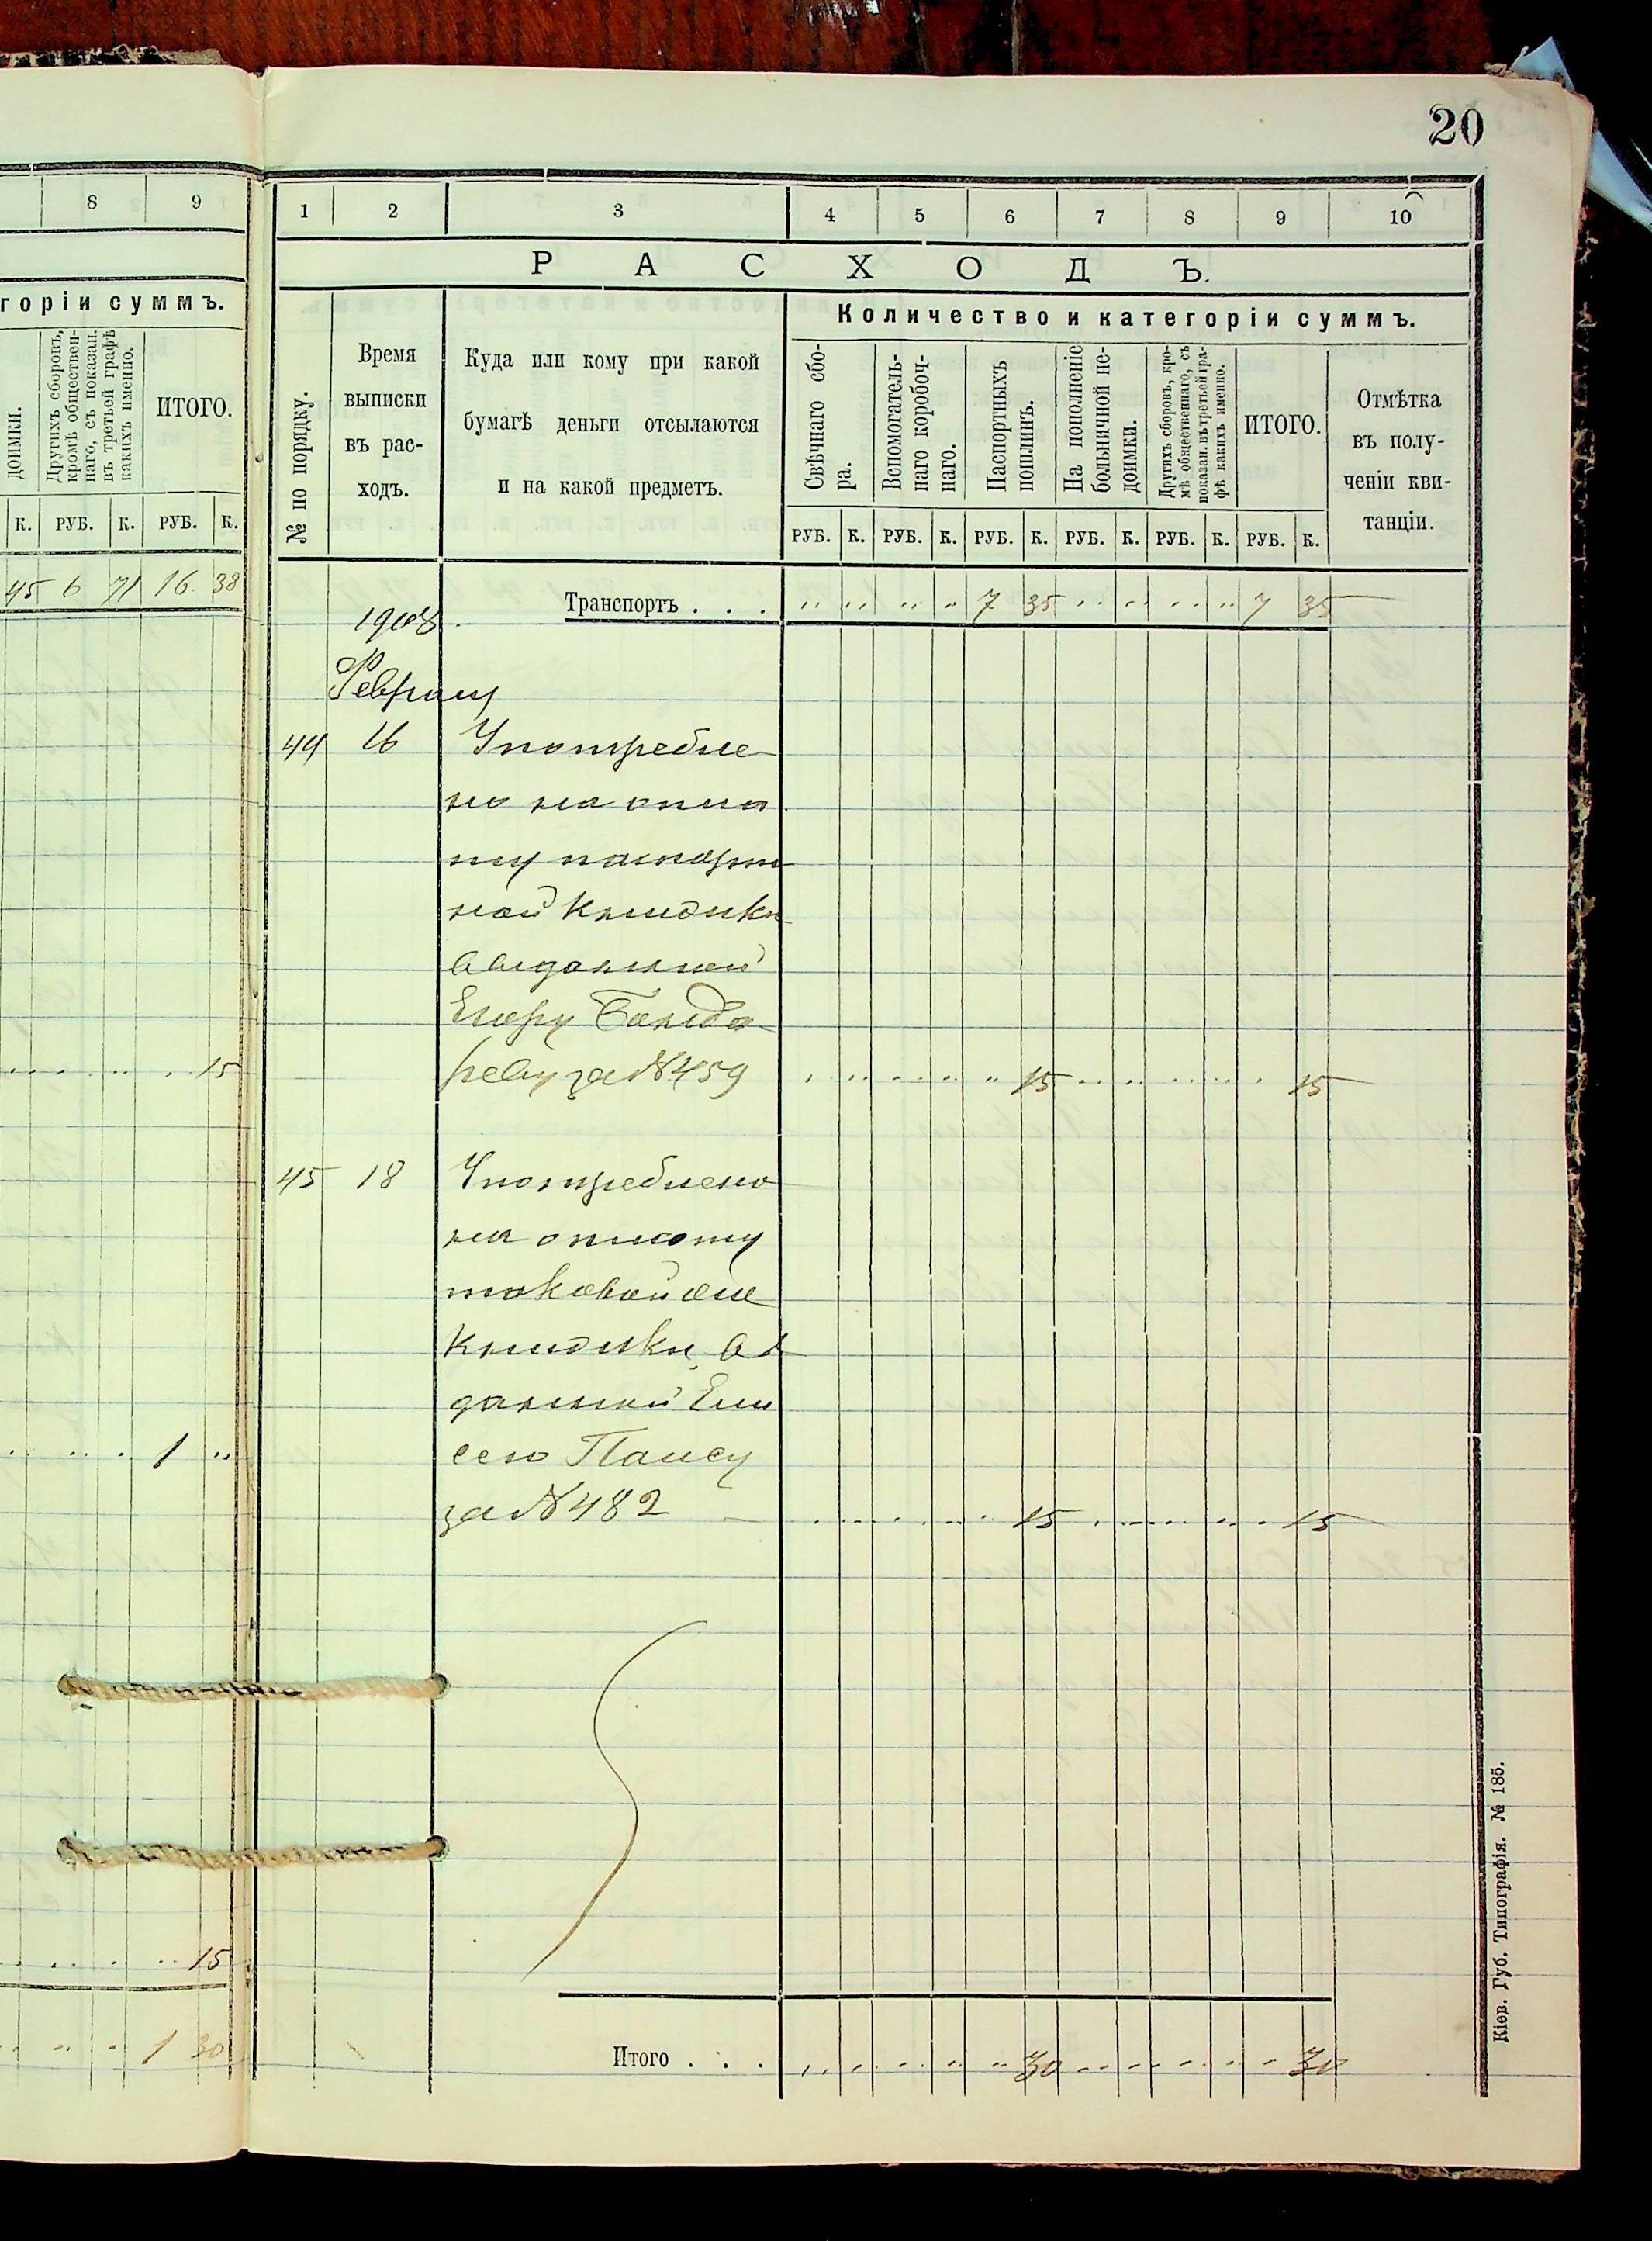 20
8 9
горіи суммъ.
доимки.
Другихъ сборовъ,
кромѣ обществен-
наго, съ показан.
въ третьей графѣ
какихъ именно.
ИТОГО.
К. РУБ. К. РУБ. К.
45 6 71 16. 38
15
1 "
15
1 30
1 2 3 4 5 6 7 8 9 10
РАСХОДЪ.
Количество и категоріи суммъ.
№ по порядку.
Время
выписки
въ рас-
ходъ.
Куда или кому при какой
бумагѣ деньги отсылаются
и на какой предметъ.
Свѣчнаго сбо-
ра.
Вспомогатель-
наго коробоч-
наго.
Паспортныхъ
пошлинъ.
На пополненіе
больничной не-
доимки.
Другихъ сборовъ, кро-
мѣ общественнаго, съ
показан. въ третьей гра-
фѣ какихъ именно.
ИТОГО.
Отмѣтка
въ полу-
ченіи кви-
танціи.
РУБ. К. РУБ. К. РУБ. К. РУБ. К. РУБ. К. РУБ. К.
Транспортъ . . . " " " " 7 35 " " " " 7 35
1908.
Февраля
44 16 Употребле-
но на опла
ту паспорт
ной книжки
выданной
Егору Бонда-
реву за № 459 15 15
45 18 Употреблено
на оплату
таковой же
книжки, вы
данной Ели
сею Паису
за № 482 15 15
Итого . . . 30 30
Кіев. Губ. Типографія. № 185.